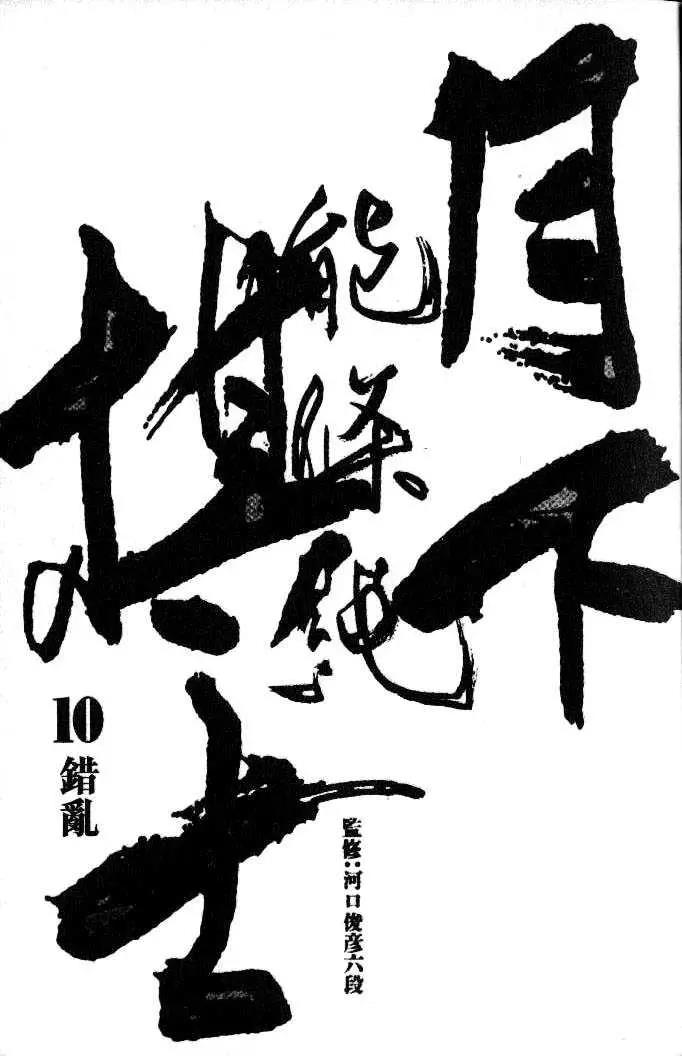 月下
棋士
能條純一
10
錯亂
監修:河口俊彥六段